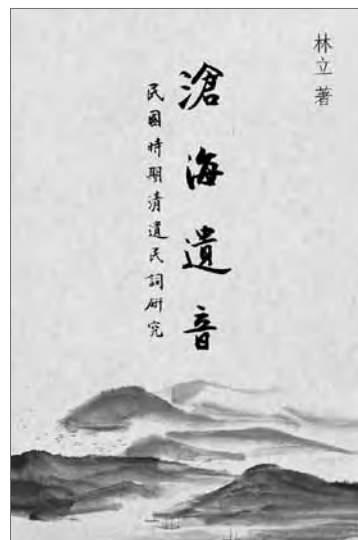 林立 著
滄海遺音
民國時期清遺民詞研究